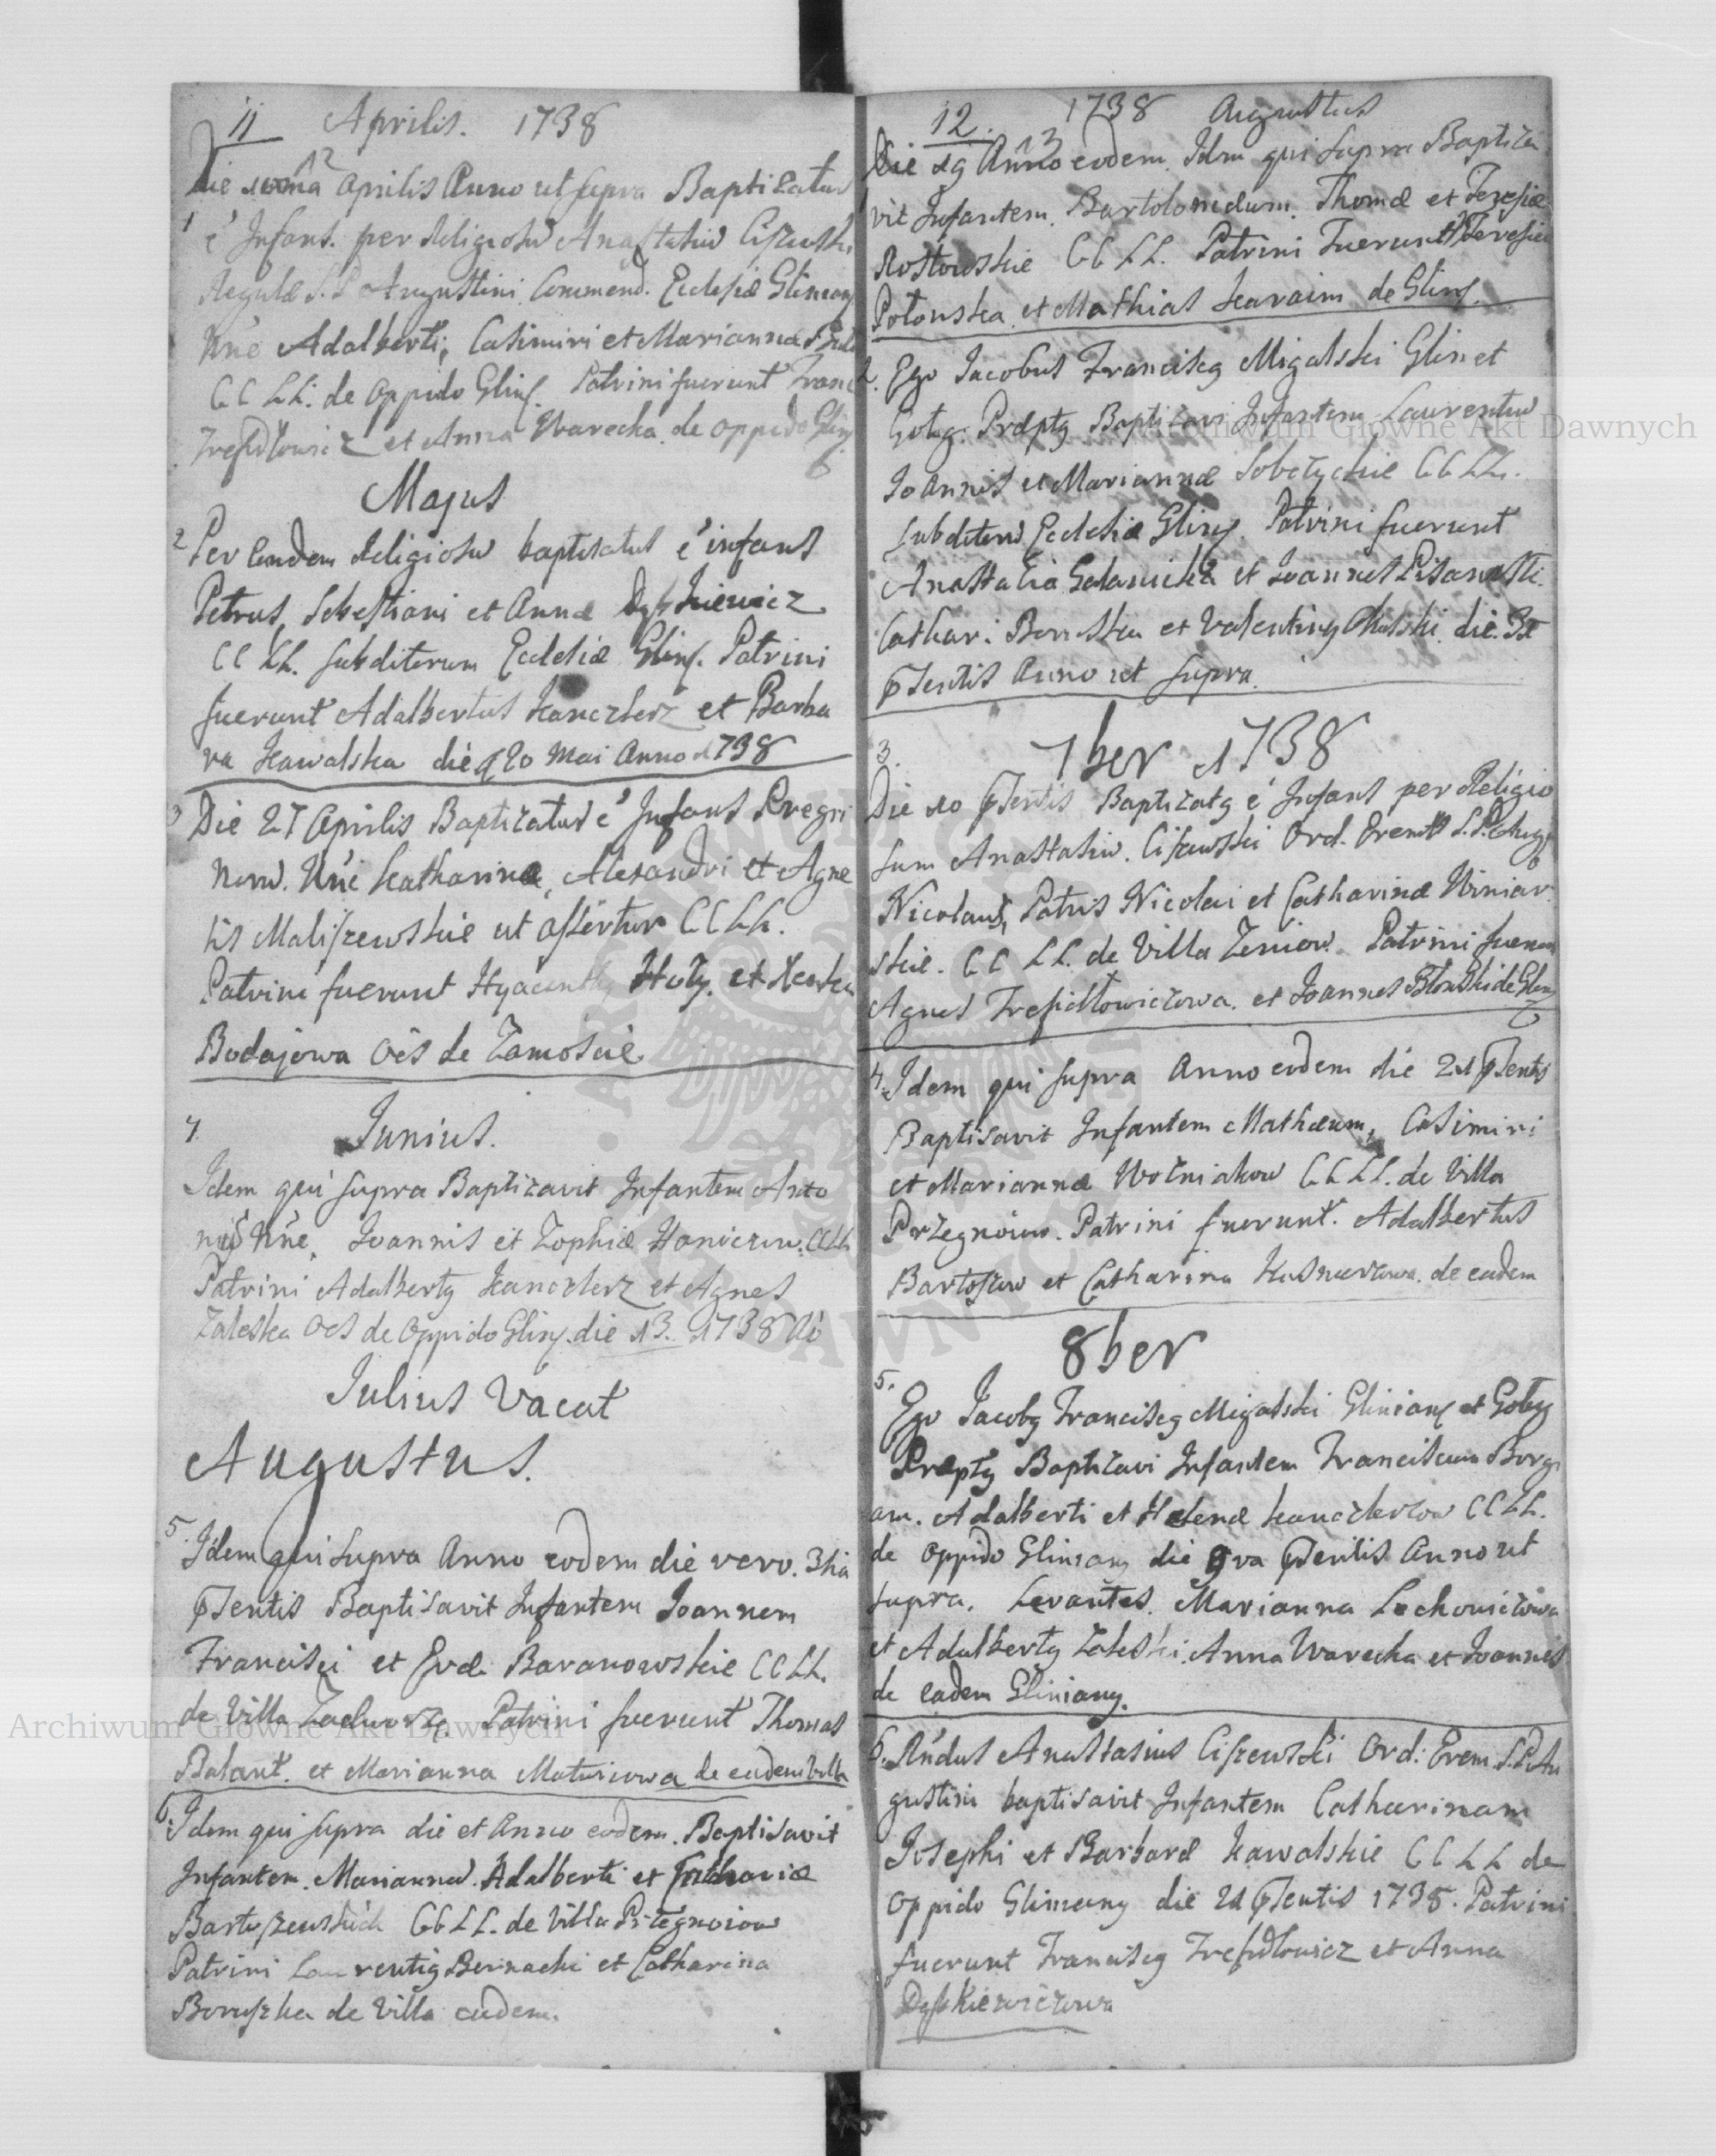 11 Aprilis. 1738
12
Die Aprilis Anno ut supra Baptizatus
1 é Infans. per Religiosũ Anastasiũ Ciszewski
Regulæ S. P. Augustini Commend. Ecclesiæ Glinian
Nñe Adalberti, Casimiri et Mariannæ
CC LL. de Oppido Glin. Patrini fuerunt Franc
Trefidłowicz et Anna Warecka de oppido Glin
Majus
2 Per Eundem Religiosũ baptisatus é infans
Petrus, Sebestiani et Annæ Dyszkiewicz
CC LL. subditorum Ecclesiæ Glin. Patrini
fuerunt Adalbertus Kanczlerz et Barba
ra Kawalska die 20 Mai Anno 1738
3 Die 27 Aprilis Baptizatus é Infans Peregri
norũ. Nñe Katharinæ, Alexandri et Agne
tis Maliszewskie ut assertur CC LL.
Patrini fuerunt Hyacinthg et
Budajowa óés de Zamoście
4. Junius.
Idem qui supra Baptizavit Infantem Anto
Nñe, Ioannis et Zophiæ CCLL
Patrini Adalbertg Kanczlerz et Agnes
Zaleska oés de Oppido Gliny. die 13. 1738 Aõ
Julius Vacat
Augustus.
5. Idem qui supra Anno eodem die vero. 3tia
psentis Baptisavit Infantem Joannem
Francisci et Evæ Baranowskie CC LL.
de Villa Zadworze Patrini fuerunt Thomas
Balant. et Marianna Matusowa de eadem Villa
6. Idem qui supra die et Anno eodem. Baptisavit
Infantem. Mariannã. Adalberti et
CC LL. de Villa Przegnoiow
Patrini Laurentig Bernacki et Catharina
Boruszka de Villa eadem.
12. 1738 Augustus
13
Die 19 Anno eodem. Idem qui supra Baptiza
1 vit Infantem. Bartolomæum. Thomæ et Teresiæ
Rostowskie CC LL. Patrini Fuerunt Teresia
Potonska et Mathias Karaim de Glin.
2. Ego Jacobus Franciscg Migalski Glin et
Gołog. Præptg Baptizavi Infantem Laurentiũ
Joannis et Mariannæ Sobczyckie CC LL.
subditorũ Ecclesiæ Gliny. Patrini fuerunt
Anastazia et Ioannes Pisarzski
Cathar. et Valenting die.
psentis Anno ut supra.
3. 7ber 1738
Die 10 psentis Baptizatg é Infans per Religio
sum Anastasiũ. Ciszewski Ord. Erem S. P. Aug
Nicolaus, Patris Nicolai et Catharinæ Winiar
skie. CC LL. de Villa Zeniow. Patrini fuerun
Agnes Trefidłowiczowa. et Joannes Błonski de Glin
4. Idem qui supra Anno eodem die 21 psentis
Baptisavit Infantem Mathæum, Casimiri
et Mariannæ Wozniakow CC LL. de Villa
Przegnoiow. Patrini fuerunt. Adalbertus
Bartoszow et Catharina Kusnierzowa. de eadem
8ber
5. Ego Jacobg Franciscg Migalski Glinian et Gołog
Præptg Baptizavi Infantem Franciscum Borg
am. Adalberti et Helenæ Kanczlerzow CC LL.
de Oppido Gliniany die 9va psentis Anno ut
supra. Levantes. Marianna Lechowiczowa
et Adalbertg Zaleski. Anna Warecka et Ioannes
de eadem Gliniany.
6. Rńdus Anastasius Ciszewski Ord: Erem. S. P. Au
gustini baptisavit Infantem Catharinam
Josephi et Barbaræ Kawalskie CC LL de
Oppido Gliniany die 21 psentis 1738. Patrini
fuerunt Franciscg Trefidłowicz et Anna
Dyszkiewiczowa
Archiwum Główne Akt Dawnych
Archiwum Główne Akt Dawnych